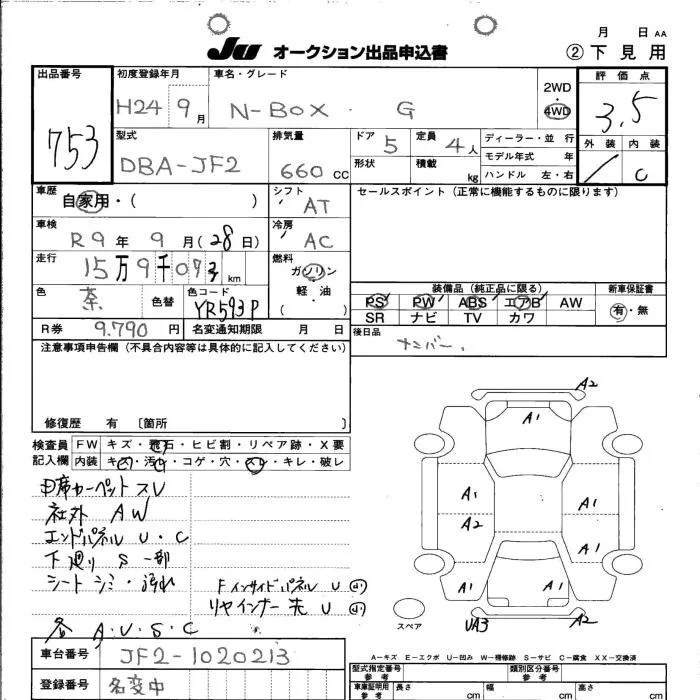 月 日 AA
JU オークション出品申込書 ②下見用
出品番号 初度登録年月 車名・グレード 2WD 評価点
753 H24 9月 N-BOX G 4WD 3.5
型式 排気量 ドア 5 定員 4人 ディーラー・並行 外装 内装
DBA-JF2 660cc 形状 積載 kg モデル年式 年 C
ハンドル 左・右
車歴 自家用・( ) シフト AT セールスポイント(正常に機能するものに限ります)
車検 R9年9月(28日) 冷房 AC
走行 15万9千073km 燃料 ガソリン
軽油
( )
装備品(純正品に限る) 新車保証書
色 茶 色替 色コード YR593P PS PW ABS エアB AW 有・無
SR ナビ TV カワ
R券 9.790円 名変通知期限 月 日 後日品
ナンバー.
注意事項申告欄(不具合内容等は具体的に記入してください)
修復歴 有 〔箇所 〕
検査員 FW キズ・飛石・ヒビ割・リペア跡・X要
記入欄 内装 キズ・汚れ・コゲ・穴・スレ・キレ・破レ
A2
A1
A1 A1
A2
A1
A1 A1
スペア UA3 A2
席カーペットスレ
社外 AW
エンドパネル U・C
下廻り S 一部
シートシミ・汚れ Fインサイドパネル U 小
リヤインナー 先 U 小
各 A・U・S・C
A-キズ E-エクボ U-凹み W-補修跡 S-サビ C-腐食 XX-交換済
車台番号 JF2-1020213 型式指定番号 参考 類別区分番号 参考
登録番号 名変中 車庫証明用 参考 長さ cm 幅 cm 高さ cm